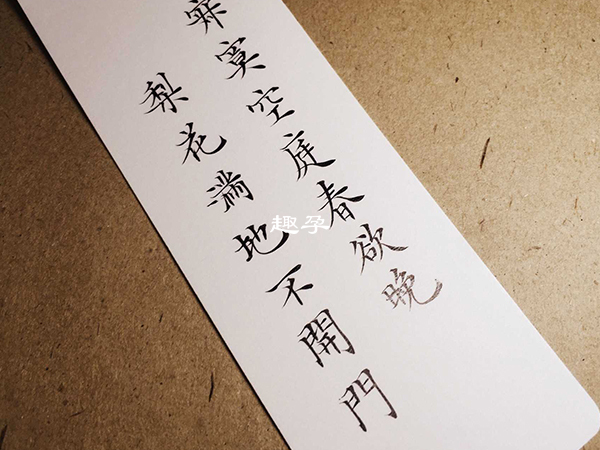 寂寞空庭春欲晚
梨花满地不開門
趣孕